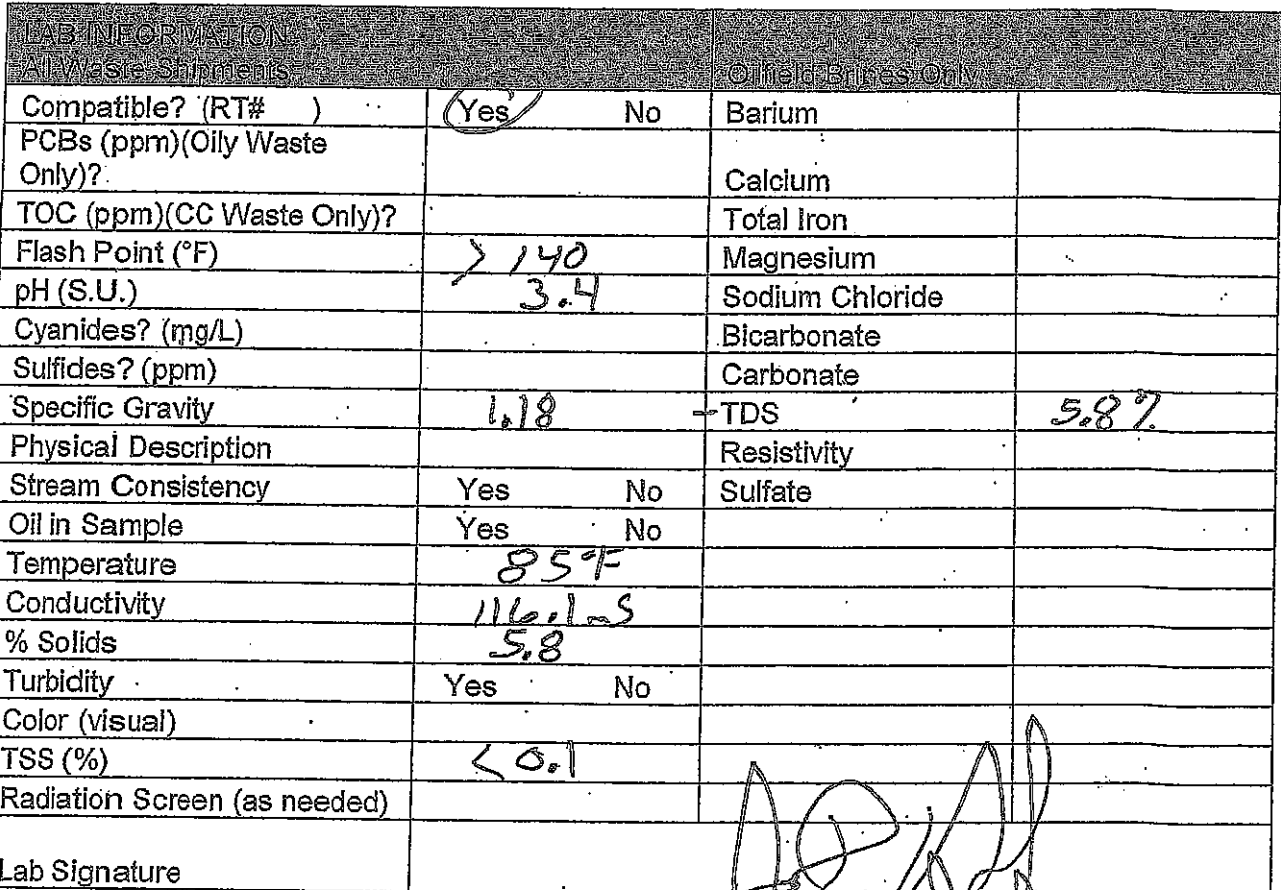 LAB INFORMATION
All Waste Shipments Oilfield Brines Only
Compatible? (RT# ) Yes No Barium
PCBs (ppm)(Oily Waste
Only)? Calcium
TOC (ppm)(CC Waste Only)? Total Iron
Flash Point (°F) > 140 Magnesium
pH (S.U.) 3.4 Sodium Chloride
Cyanides? (mg/L) Bicarbonate
Sulfides? (ppm) Carbonate
Specific Gravity 1.18 TDS 5.8%
Physical Description Resistivity
Stream Consistency Yes No Sulfate
Oil in Sample Yes No
Temperature 85°F
Conductivity 116.1 mS
% Solids 5.8
Turbidity Yes No
Color (visual)
TSS (%) < 0.1
Radiation Screen (as needed)
Lab Signature